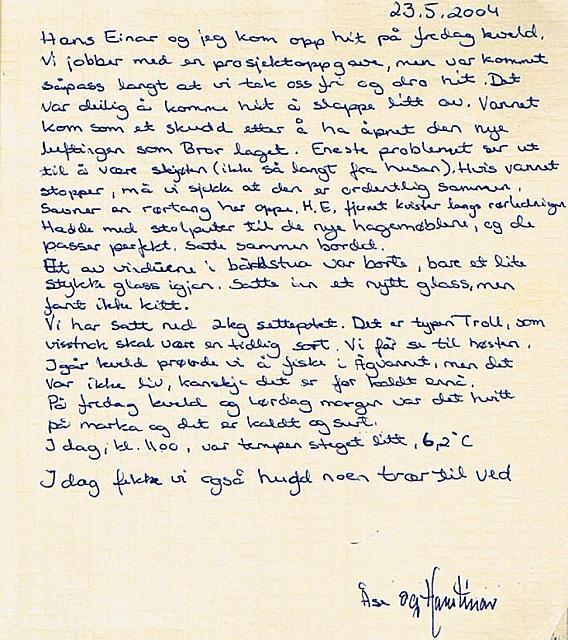 23.5.2004
Hans Einar og jeg kom opp hit på fredag kveld.
Vi jobber med en prosjektoppgave, men var kommet
såpass langt at vi tok oss fri og dro hit. Det
var deilig å komme hit å slappe litt av. Vannet
kom som et skudd etter å ha åpnet den nye
luftingen som Bror laget. Eneste problemet ser ut
til å være skjøten (ikke så langt fra husan). Hvis vannet
stopper, må vi sjekke at den er ordentlig sammen.
Savner en rørtang her oppe. H.E. fjernet kvister langs rørledningen
Hadde med stolputer til de nye hagemøblene, og de
passer perfekt. Satte sammen bordet.
Et av vinduene i bårdstua var borte, bare et lite
stykke glass igjen. Satte inn et nytt glass, men
fant ikke kitt.
Vi har satt ned 2kg settepotet. Det er typen Troll, som
visstnok skal være en tidlig sort. Vi får se til høsten.
Igår kveld prøvde vi å fiske i Åvannet, men det
var ikke liv, kanskje det er for kaldt ennå.
På fredag kveld og lørdag morgen var det hvitt
på marka og det er kaldt og surt.
I dag, kl. 1100, var tempen steget litt, 6,2°C
I dag fikk vi også hugd noen trær til ved
Åse og Hans Einar